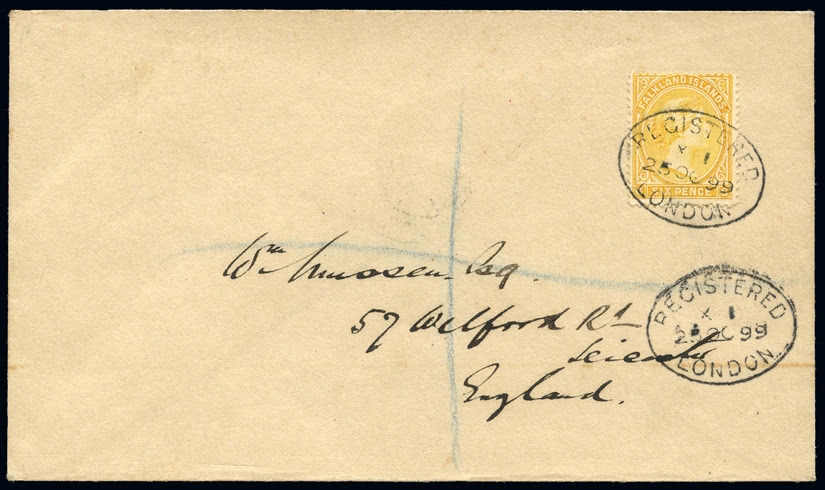 FALKLAND ISLANDS
SIX PENCE
REGISTERED
X 1
25 OC 99
LONDON
Wm Mussen Esq
57 Welford Rd
Leicester
England.
REGISTERED
X 1
25 OC 99
LONDON